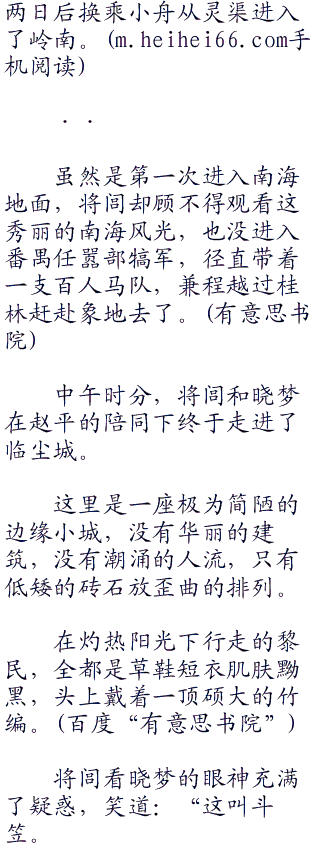 两日后换乘小舟从灵渠进入
了岭南。(m.heihei66.com手
机阅读)
. .
虽然是第一次进入南海
地面，将闾却顾不得观看这
秀丽的南海风光，也没进入
番禺任嚣部犒军，径直带着
一支百人马队，兼程越过桂
林赶赴象地去了。(有意思书
院)
中午时分，将闾和晓梦
在赵平的陪同下终于走进了
临尘城。
这里是一座极为简陋的
边缘小城，没有华丽的建
筑，没有潮涌的人流，只有
低矮的砖石放歪曲的排列。
在灼热阳光下行走的黎
民，全都是草鞋短衣肌肤黝
黑，头上戴着一顶硕大的竹
编。(百度“有意思书院”)
将闾看晓梦的眼神充满
了疑惑，笑道：“这叫斗
笠。